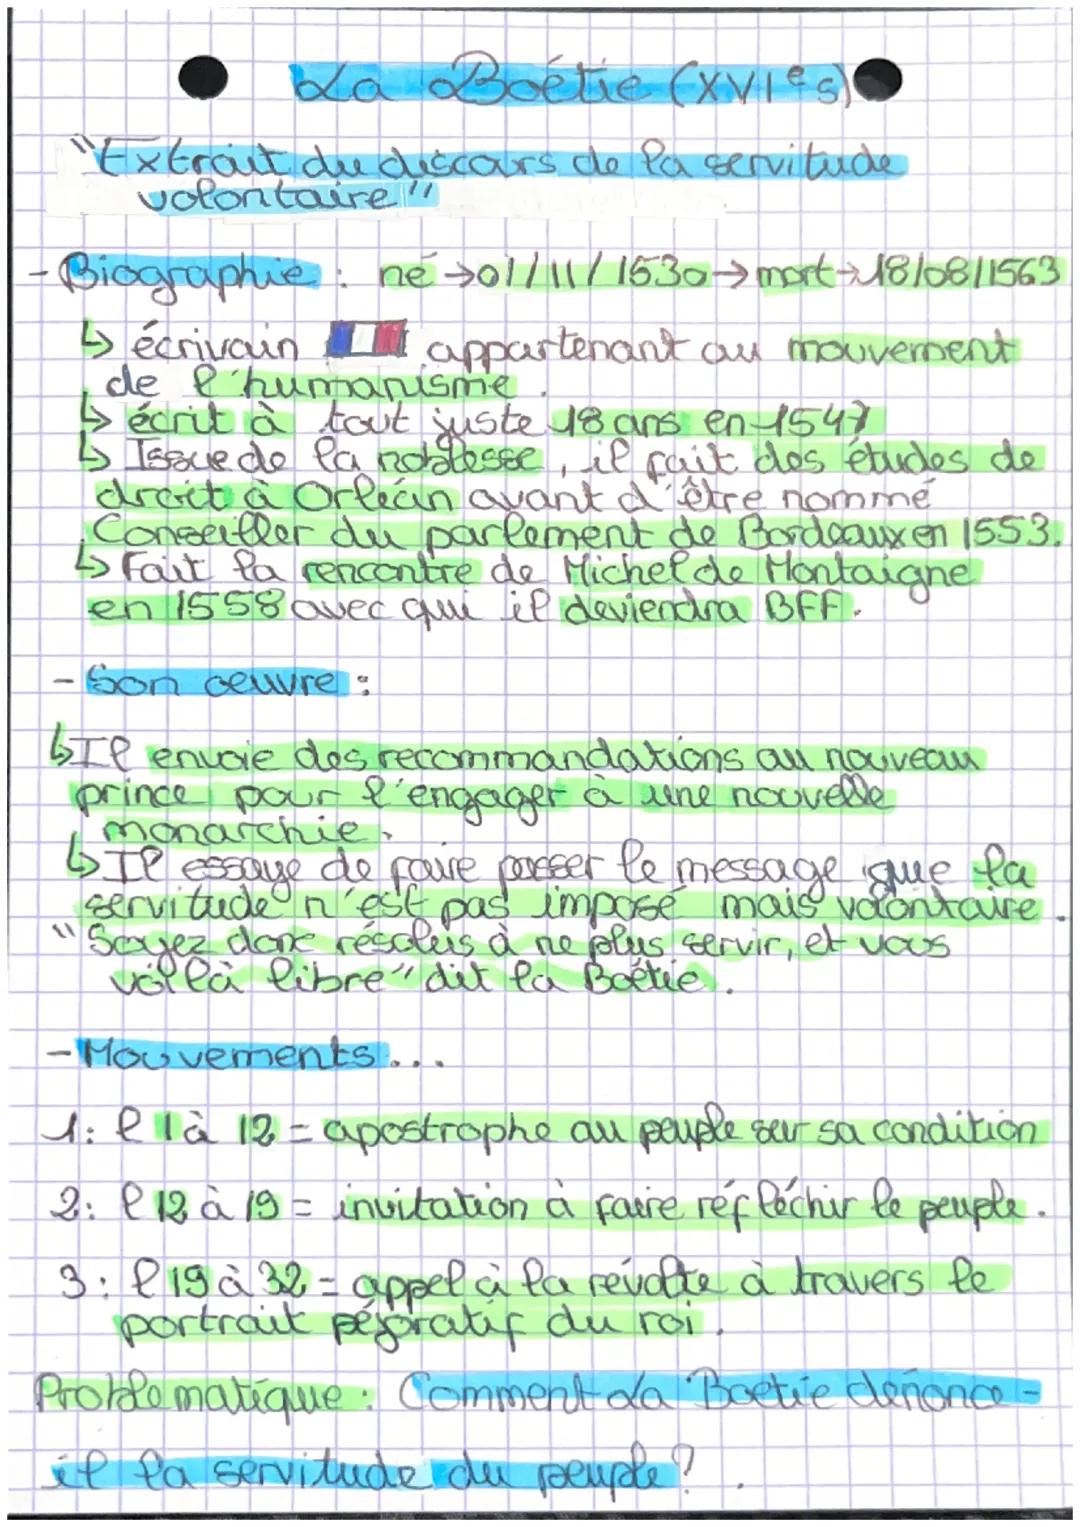 La Boétie (XVIe s)
"Extrait du discours de la servitude
volontaire"
- Biographie : né → 01/11/1530 → mort → 18/08/1563
↳ écrivain 🇫🇷 appartenant au mouvement
de l'humanisme.
↳ écrit à tout juste 18 ans en 1547
↳ Issue de la noblesse, il fait des études de
droit à Orléan avant d'être nommé
Conseiller du parlement de Bordeaux en 1553.
↳ Fait la rencontre de Michel de Montaigne
en 1558 avec qui il deviendra BFF.
- Son œuvre :
↳ Il envoie des recommandations au nouveau
prince pour l'engager à une nouvelle
monarchie.
↳ Il essaye de faire passer le message que la
servitude n'est pas imposé mais volontaire.
"Soyez donc résolus à ne plus servir, et vous
voilà libre" dit la Boétie.
- Mouvements...
1: l 1 à 12 = apostrophe au peuple sur sa condition
2: l 12 à 19 = invitation à faire réfléchir le peuple.
3: l 19 à 32 = appel à la révolte à travers le
portrait péjoratif du roi.
Problématique : Comment La Boetie dénonce-
il la servitude du peuple ?.